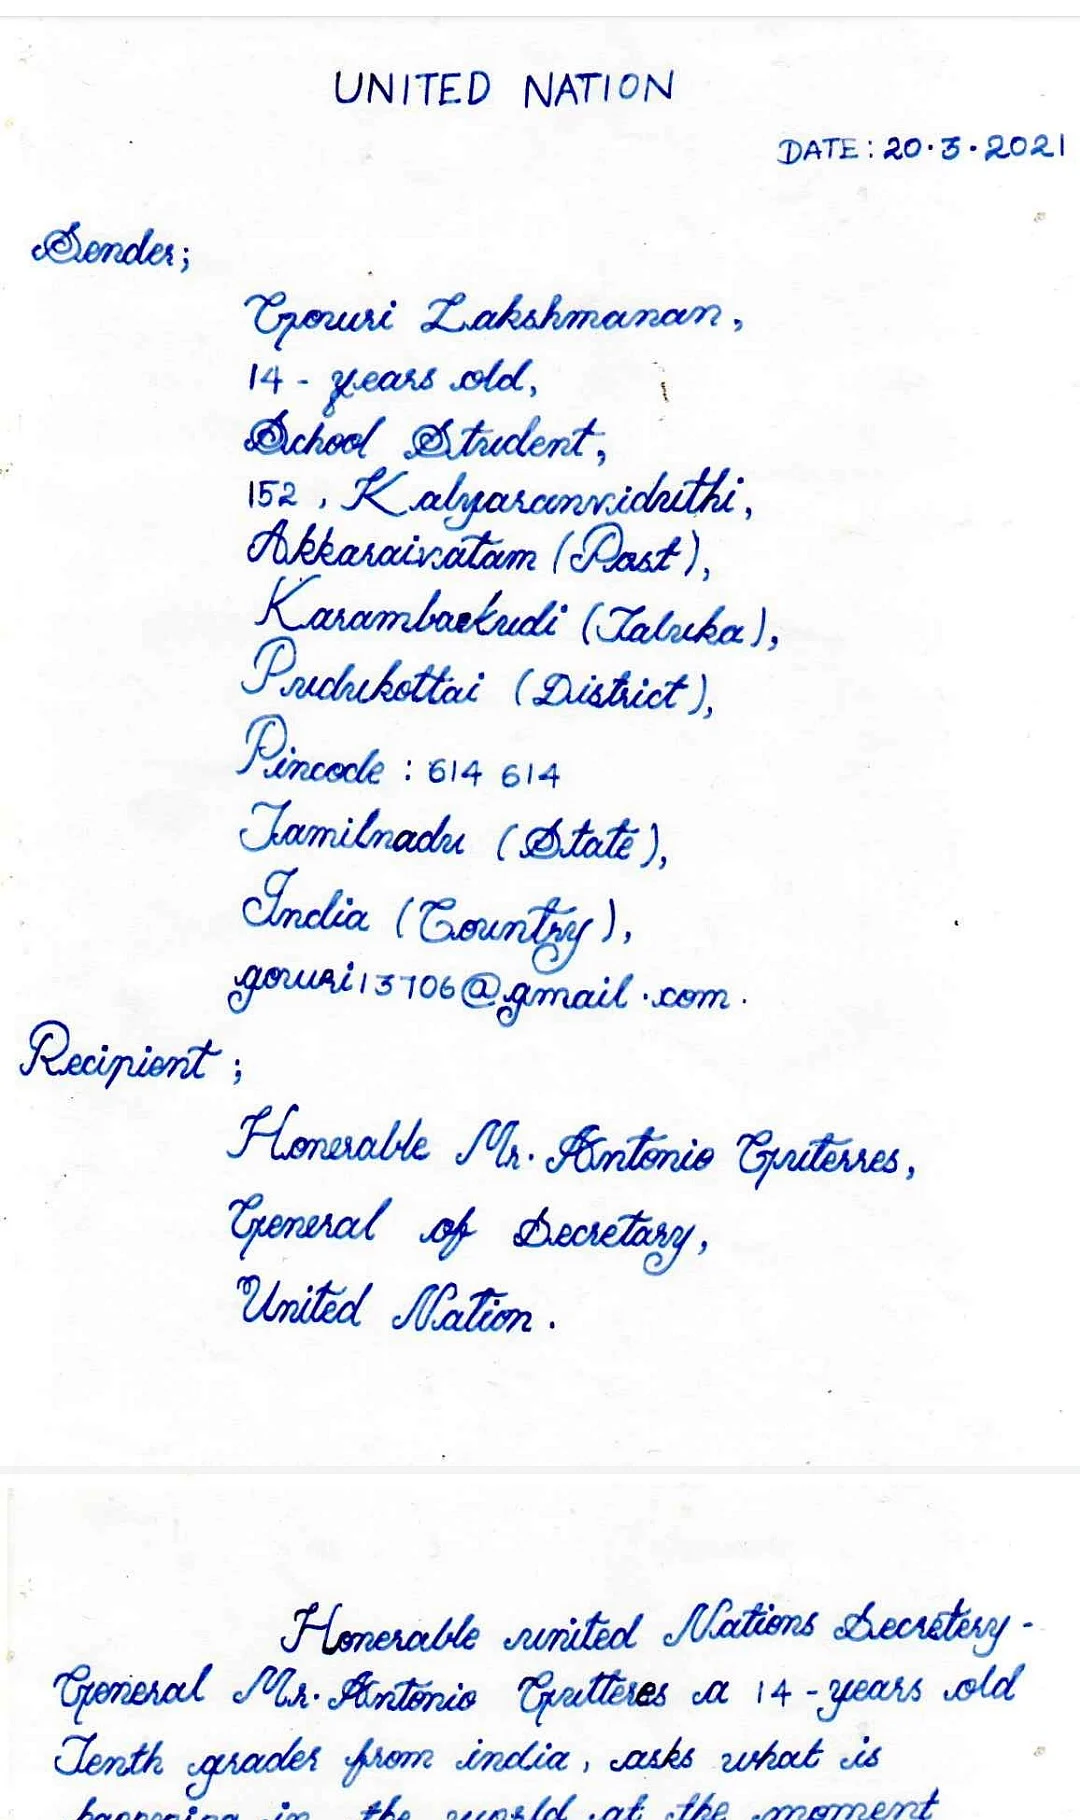 UNITED NATION
DATE: 20.3.2021
Sender;
Gowri Lakshmanan,
14 - years old,
School Student,
152, Kalyaranviduthi,
Akkaraivatam (Post),
Karambackudi (Taluka),
Pudukottai (District),
Pincode : 614 614
Tamilnadu (State),
India (Country),
gowri13706@gmail.com.
Recipient ;
Honerable Mr. Antonio Guterres,
General of Secretary,
United Nation.
Honerable united Nations Secretery-
General Mr. Antonio Gutteres a 14-years old
Tenth grader from india, asks what is
happening in the world at the moment